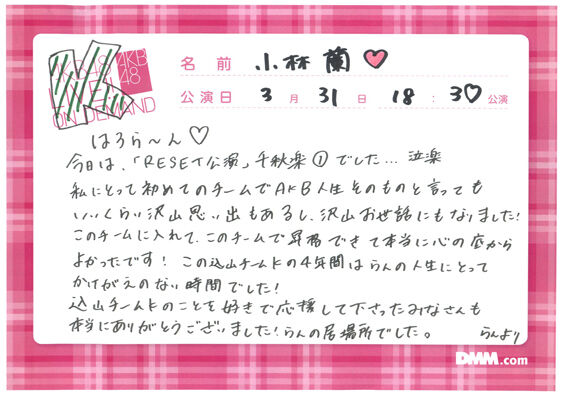 AKB48
LIVE!!
ON DEMAND
K
名前 小林 蘭 ♡
公演日 3月31日 18:30公演
はろら〜ん♡
今日は、「RESET公演」千秋楽①でした… 泣楽
私にとって初めてのチームでAKB人生そのものと言っても
いいくらい沢山思い出もあるし、沢山お世話にもなりました!
このチームに入れて、このチームで昇格できて本当に心の底から
よかったです! この込山チームKの4年間はらんの人生にとって
かけがえのない時間でした!
込山チームKのことを好きで応援して下さったみなさんも
本当にありがとうございました!らんの居場所でした。 らんより
DMM.com